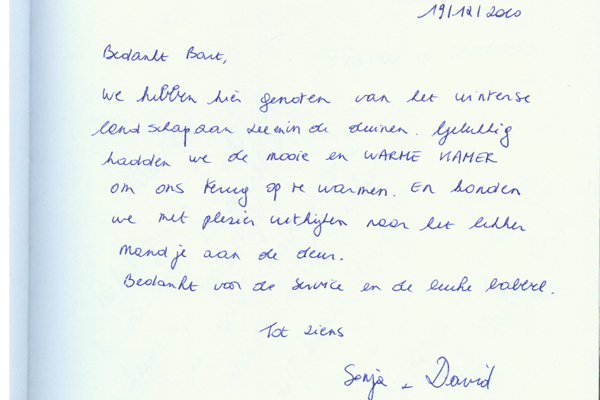 19/12/2010
Bedankt Bart,
We hebben hier genoten van het winterse
landschap aan zee en in de duinen. Gelukkig
hadden we de mooie en WARME KAMER
om ons terug op te warmen. En konden
we met plezier uitkijken naar het lekker
mandje aan de deur.
Bedankt voor de service en de leuke babbel.
Tot ziens
Sonja + David